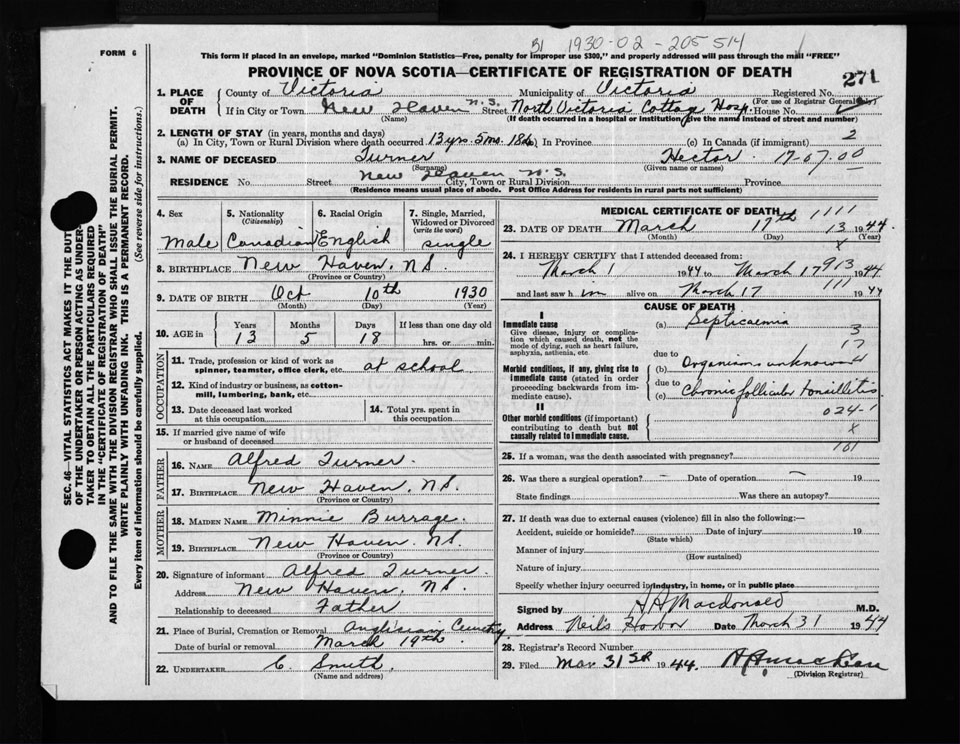 B1 1930-02-205514
FORM 6
This form if placed in an envelope, marked "Dominion Statistics—Free, penalty for improper use $300," and properly addressed will pass through the mail "FREE"
PROVINCE OF NOVA SCOTIA—CERTIFICATE OF REGISTRATION OF DEATH
271
1. PLACE OF DEATH
County of Victoria Municipality of Victoria Registered No.
(For use of Registrar General only)
If in City or Town New Haven N.S. Street North Victoria Cottage Hosp. House No.
(Name) (If death occurred in a hospital or institution give the name instead of street and number)
2. LENGTH OF STAY (in years, months and days)
(a) In City, Town or Rural Division where death occurred 13 yrs. 5 mo. 18 d. (b) In Province (c) In Canada (if immigrant)
2
3. NAME OF DECEASED Turner Hector 17-07-00
(Surname) (Given name or names)
RESIDENCE No. Street New Haven N.S. City, Town or Rural Division Province
(Residence means usual place of abode. Post Office Address for residents in rural parts not sufficient)
SEC. 46—VITAL STATISTICS ACT MAKES IT THE DUTY
OF THE UNDERTAKER OR PERSON ACTING AS UNDER-
TAKER TO OBTAIN ALL THE PARTICULARS REQUIRED
IN THE "CERTIFICATE OF REGISTRATION OF DEATH"
AND TO FILE THE SAME WITH THE DIVISION REGISTRAR WHO SHALL ISSUE THE BURIAL PERMIT.
WRITE PLAINLY WITH UNFADING INK. THIS IS A PERMANENT RECORD.
Every item of information should be carefully supplied. (See reverse side for instructions.)
4. Sex
Male
5. Nationality
(Citizenship)
Canadian
6. Racial Origin
English
7. Single, Married, Widowed or Divorced
(write the word)
single
8. BIRTHPLACE New Haven, N.S.
(Province or Country)
9. DATE OF BIRTH Oct 10th 1930
(Month) (Day) (Year)
10. AGE in
Years Months Days If less than one day old
13 5 18 hrs. or min.
OCCUPATION
11. Trade, profession or kind of work as
spinner, teamster, office clerk, etc. at school
12. Kind of industry or business, as cotton-
mill, lumbering, bank, etc.
13. Date deceased last worked
at this occupation
14. Total yrs. spent in
this occupation
15. If married give name of wife
or husband of deceased
FATHER
16. NAME Alfred Turner
17. BIRTHPLACE New Haven, N.S.
(Province or Country)
MOTHER
18. MAIDEN NAME Minnie Burrage
19. BIRTHPLACE New Haven N.S.
(Province or Country)
20. Signature of informant Alfred Turner
Address New Haven, N.S.
Relationship to deceased Father
21. Place of Burial, Cremation or Removal Anglican Cemetry
Date of burial or removal March 19th
22. UNDERTAKER C. Smith
(Name and address)
MEDICAL CERTIFICATE OF DEATH 1111
23. DATE OF DEATH March 17th 13 1944
(Month) (Day) x (Year)
24. I HEREBY CERTIFY that I attended deceased from:
March 1 1944 to March 17 913 1944
and last saw h im alive on March 17 111 1944
CAUSE OF DEATH
I
Immediate cause
Give disease, injury or complica-
tion which caused death, not the
mode of dying, such as heart failure,
asphyxia, asthenia, etc.
(a) Septicaemia
3
17
Morbid conditions, if any, giving rise to
immediate cause (stated in order
proceeding backwards from im-
mediate cause).
due to
(b) Organism unknown
due to
(c) Chronic follicular tonsillitis
II
Other morbid conditions (if important)
contributing to death but not
causally related to immediate cause.
024-1
x
101
25. If a woman, was the death associated with pregnancy?
26. Was there a surgical operation? – Date of operation 19
State findings Was there an autopsy?
27. If death was due to external causes (violence) fill in also the following:—
Accident, suicide or homicide? Date of injury 19
(State which)
Manner of injury
(How sustained)
Nature of injury
Specify whether injury occurred in industry, in home, or in public place
Signed by Macdonald M.D.
Address Neil's Harbor Date March 31 1944
28. Registrar's Record Number
29. Filed Mar 31st 1944.
(Division Registrar)